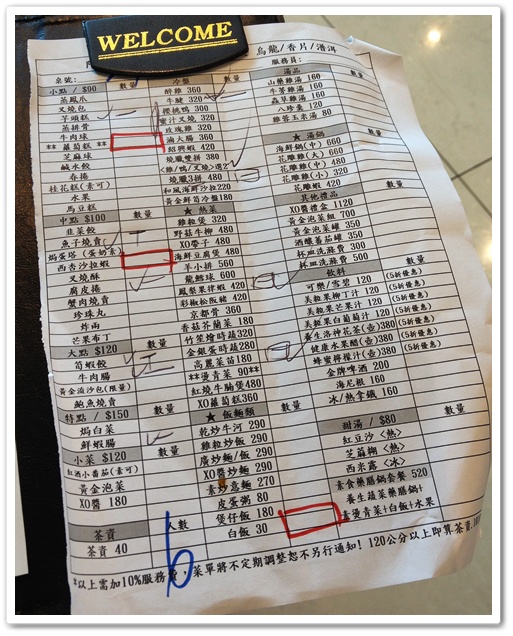 WELCOME
烏龍/香片/潽洱
桌號:
服務員:
小點 / $90
數量
蒸鳳爪
叉燒包
芋頭糕
蒸排骨
牛肉球
** 蘿蔔糕 **
芝麻球
鹹水餃
春捲
桂花糕(素可)
水果
馬豆糕
中點 $100
數量
韭菜餃
魚子燒賣
焗蛋塔(蛋奶素)
西杏沙拉蝦
叉燒酥
腐皮捲
蟹肉燒賣
珍珠丸
炸兩
芒果布丁
大點 $120
數量
筍蝦餃
牛肉腸
黃金流沙包(限量)
鮑魚燒賣
特點 / $150
數量
焗白菜
鮮蝦腸
小菜 $120
數量
紅酒小番茄(素可)
黃金泡菜
XO醬 180
茶資
人數
茶資 40
6
冷盤
數量
醉雞 360
牛腱 320
櫻桃鴨 300
蜜汁叉燒 320
玫瑰雞 320
滷大腸 360
紹興蝦 420
燒臘雙拼 380
<雞/鴨/叉燒>選2
燒臘3拼 480
和風海鮮沙拉220
黃金鮮筍冷盤180
★ 熱菜
數量
雞粒煲 320
野菇牛柳 480
XO帶子 480
海鮮豆腐煲 480
羊小排 560
龍鱈球 600
鳳梨果拌蝦 420
彩椒松阪豬 420
京都骨 360
香菇芥蘭菜 180
竹笙燴時蔬320
金銀蛋時蔬280
高麗菜苗180
**燙青菜 90**
紅燒牛腩煲480
XO蘿蔔糕360
★ 飯麵類
數量
乾炒牛河 290
雞粒炒飯 290
廣炒麵/飯 290
XO醬炒麵 290
素炒意麵 270
皮蛋粥 80
煲仔飯 180
白飯 30
湯品
數量
山藥雞湯 160
牛蒡雞湯 160
蟲草雞湯 160
八珍羹 120
雞蓉玉米湯 80
★ 湯鍋
數量
海鮮鍋(中) 660
花雕雞(大) 660
花雕雞(中) 480
花雕雞(小) 320
花雕蝦 420
其他禮品
數量
XO醬禮盒 1120
黃金泡菜組 700
黃金泡菜罐 350
酒釀番茄罐 350
杯皿洗滌費 300
杯皿洗滌費 500
飲料
數量
可樂/雪碧 120 (5折優惠)
美粒果柳丁汁 120 (5折優惠)
美粒果芒果汁 120 (5折優惠)
美粒果白葡萄汁 120 (5折優惠)
養生洛神花茶(壺)380 (5折優惠)
健康水果醋(壺)380 (5折優惠)
蜂蜜檸檬汁(壺)380 (5折優惠)
金牌啤酒 200
海尼根 160
冰/熱拿鐵 160
甜湯 / $80
數量
紅豆沙 <熱>
芝麻糊 <熱>
西米露 <冰>
素食藥膳鍋套餐 520
養生蔬菜藥膳鍋+
素燙青菜+白飯+水果
*以上需加10%服務費,菜單將不定期調整恕不另行通知! 120公分以上即算茶資.